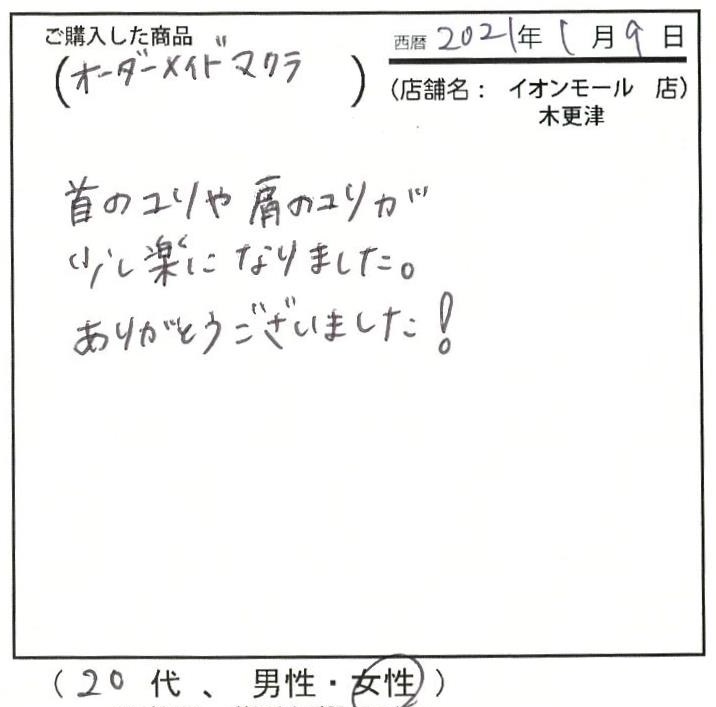 ご購入した商品
(オーダーメイドマクラ)
西暦 2021年 1月 9日
(店舗名： イオンモール 店)
木更津
首のコリや肩のコリが
少し楽になりました。
ありがとうございました！
(20代、男性・女性)